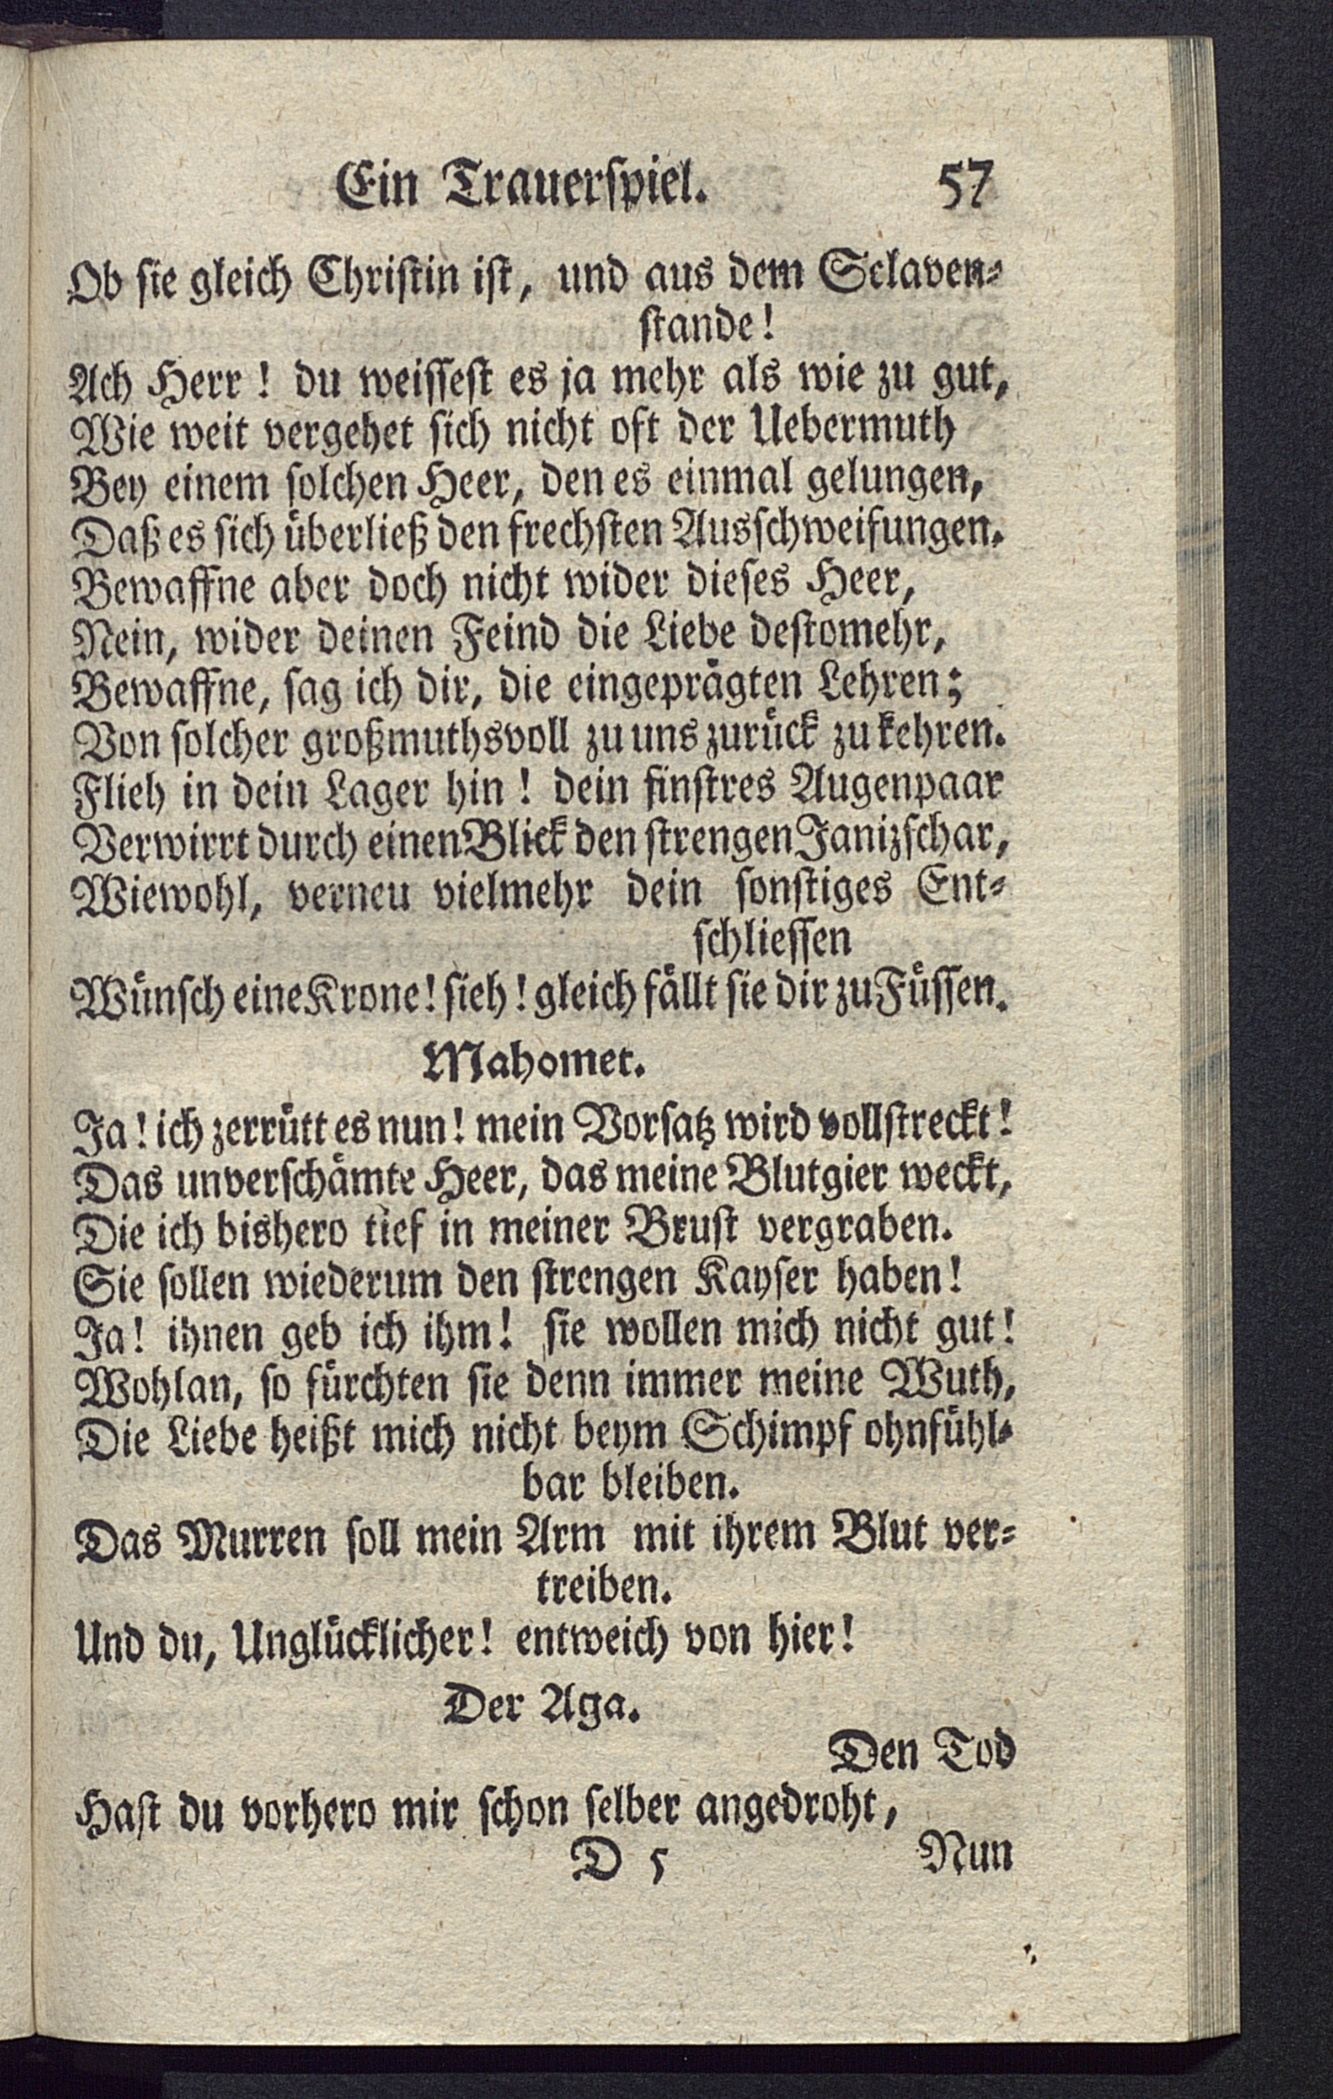 Ein Trauerspiel. 57
Ob sie gleich Christin ist, und aus dem Sclaven-
stande!
Ach Herr! du weissest es ja mehr als wie zu gut,
Wie weit vergehet sich nicht oft der Uebermuth
Bey einem solchen Heer, den es einmal gelungen,
Daß es sich überließ den frechsten Ausschweifungen.
Bewaffne aber doch nicht wider dieses Heer,
Nein, wider deinen Feind die Liebe destomehr,
Bewaffne, sag ich dir, die eingeprägten Lehren;
Von solcher großmuthsvoll zu uns zurück zu kehren.
Flieh in dein Lager hin! dein finstres Augenpaar
Verwirrt durch einen Blick den strengen Janizschar,
Wiewohl, verneu vielmehr dein sonstiges Ent-
schliessen
Wünsch eine Krone! sieh! gleich fällt sie dir zu Füssen.
Mahomet.
Ja! ich zerrütt es nun! mein Vorsatz wird vollstreckt!
Das unverschämte Heer, das meine Blutgier weckt,
Die ich bishero tief in meiner Brust vergraben.
Sie sollen wiederum den strengen Kayser haben!
Ja! ihnen geb ich ihm! sie wollen mich nicht gut!
Wohlan, so fürchten sie denn immer meine Wuth,
Die Liebe heißt mich nicht beym Schimpf ohnfühl-
bar bleiben.
Das Murren soll mein Arm mit ihrem Blut ver-
treiben.
Und du, Unglücklicher! entweich von hier!
Der Aga.
Den Tod
Hast du vorhero mir schon selber angedroht,
D 5 Nun